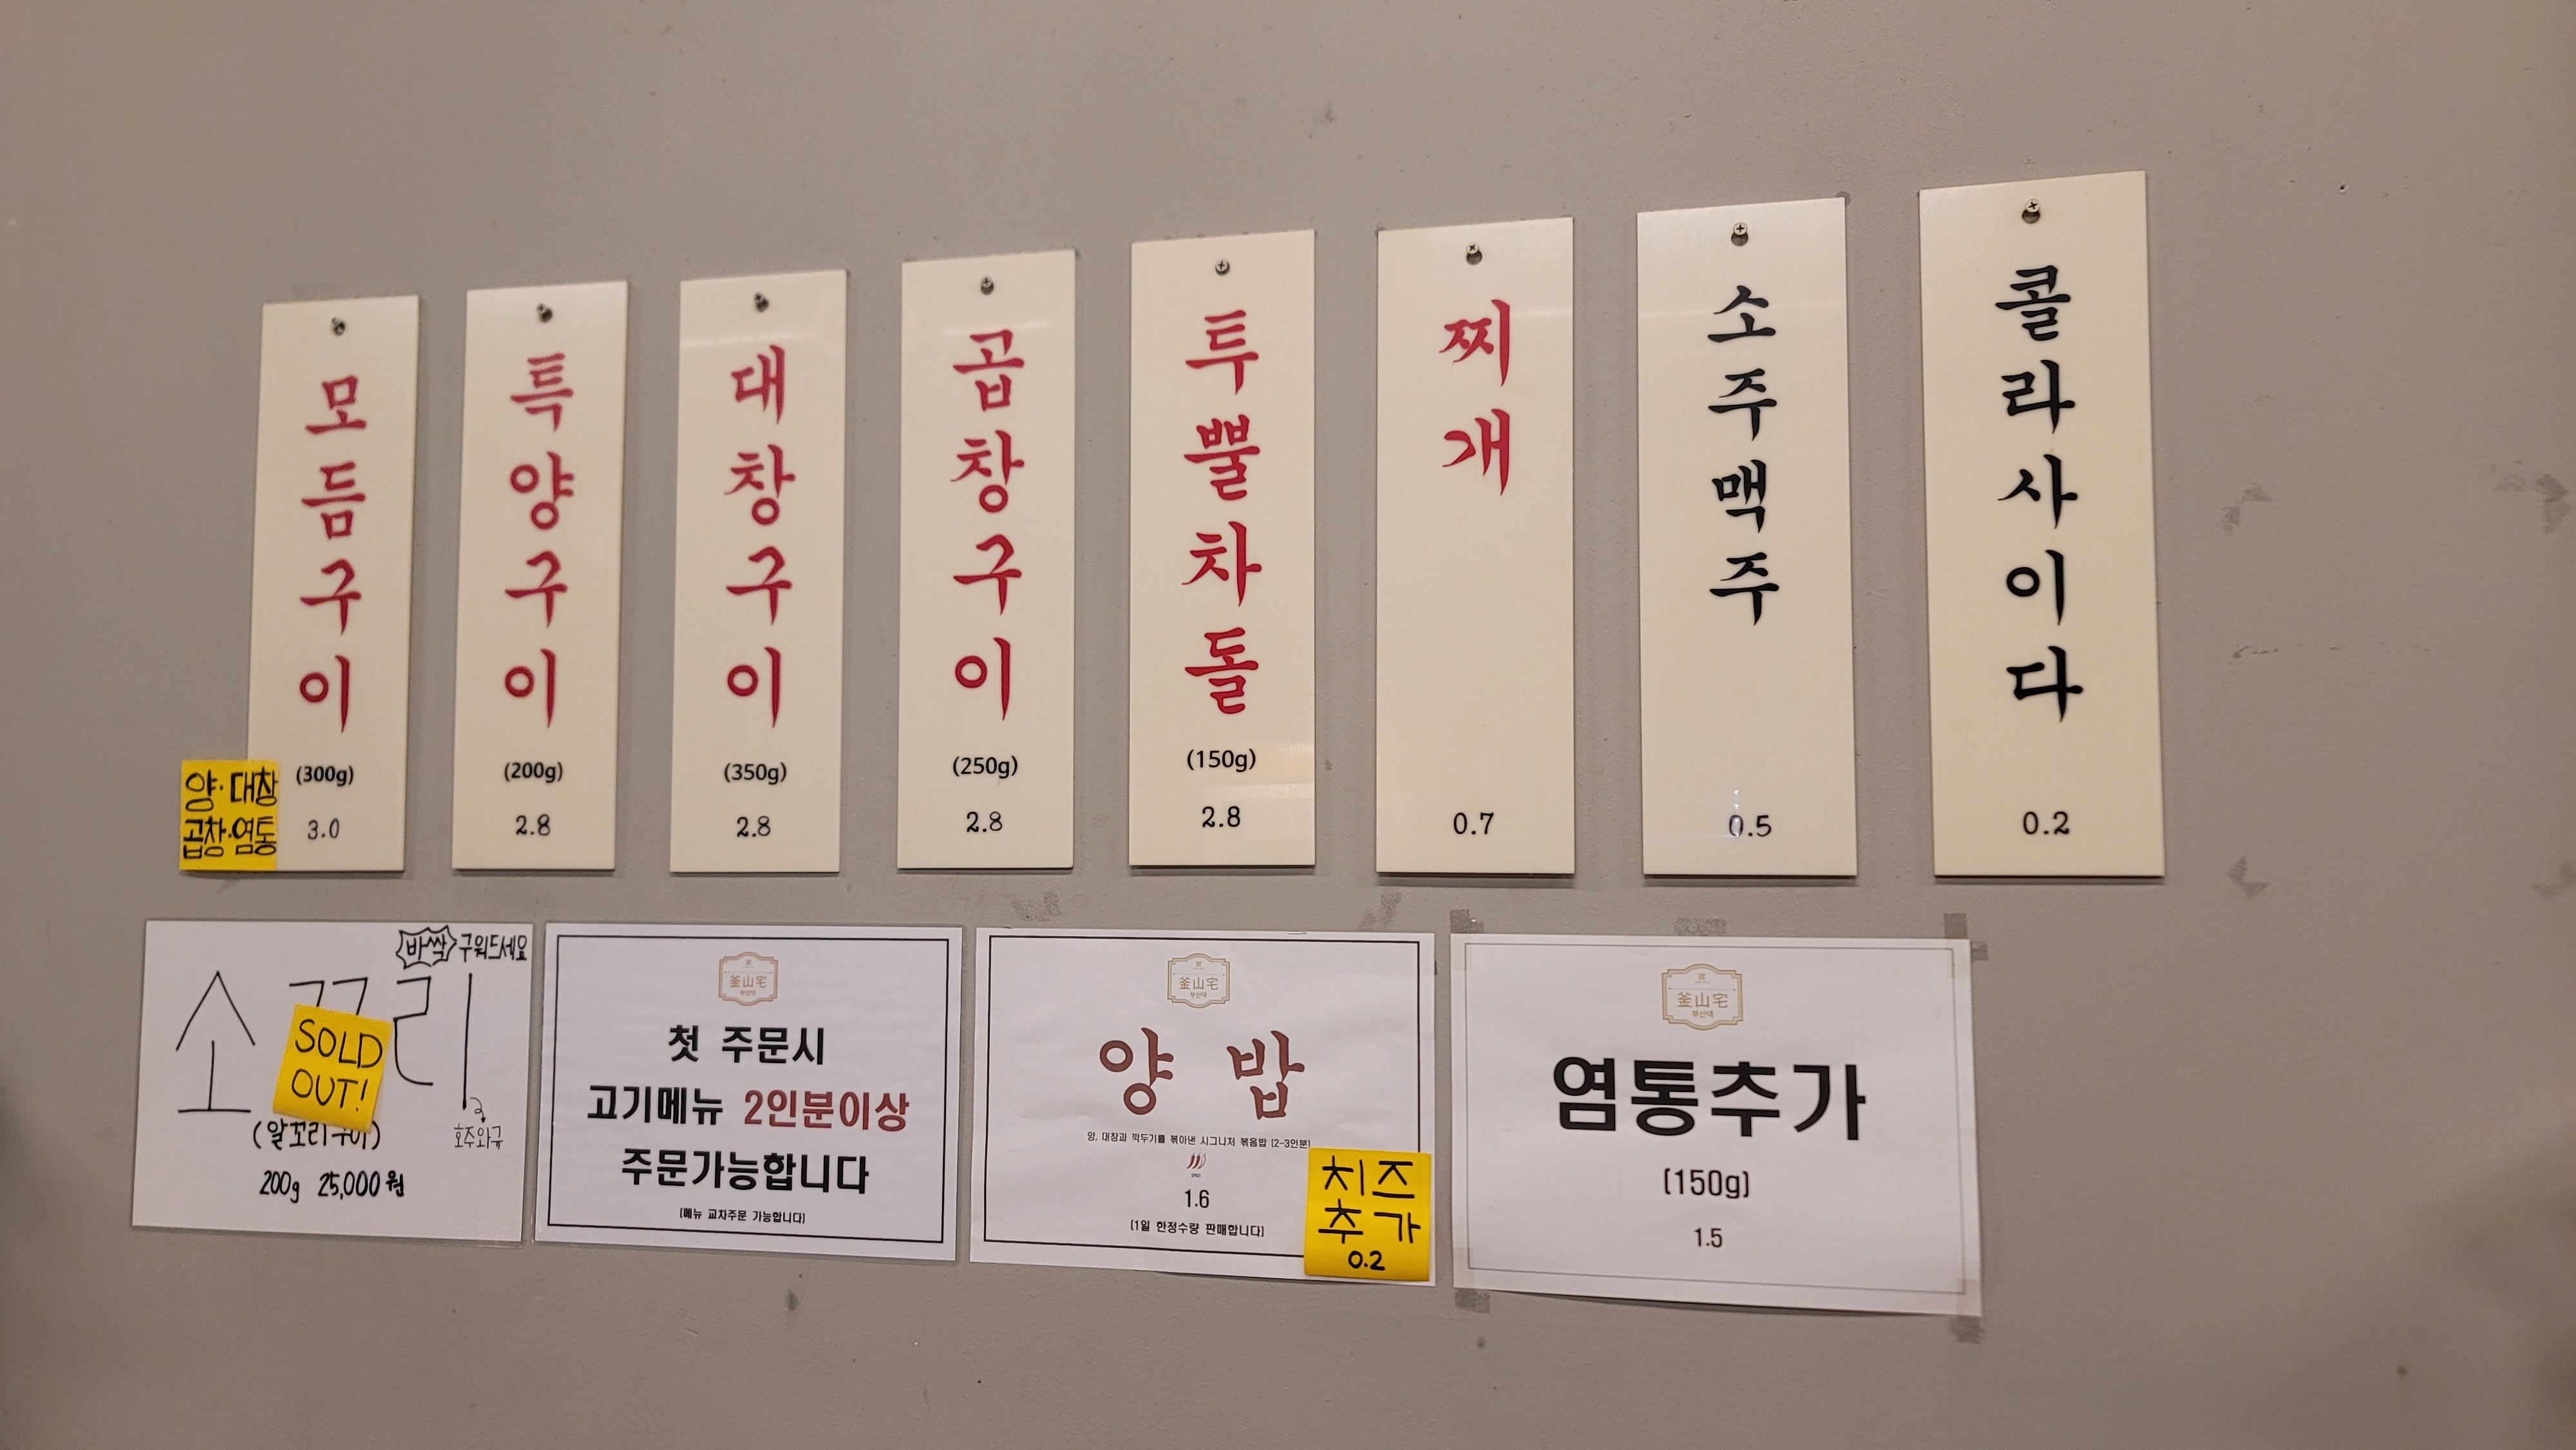 모듬구이
(300g)
3.0
양·대창
곱창·염통
특양구이
(200g)
2.8
대창구이
(350g)
2.8
곱창구이
(250g)
2.8
투뿔차돌
(150g)
2.8
찌개
0.7
소주맥주
0.5
콜라사이다
0.2
바싹 구워드세요
소꼬리
SOLD
OUT!
(알꼬리구이)
호주와규
200g 25,000원
釜山宅
부산댁
첫 주문시
고기메뉴 2인분이상
주문가능합니다
(메뉴 교차주문 가능합니다)
釜山宅
부산댁
양 밥
양, 대창과 깍두기를 볶아낸 시그니처 볶음밥 (2-3인분)
1.6
(1일 한정수량 판매합니다)
치즈
추가
0.2
釜山宅
부산댁
염통추가
(150g)
1.5